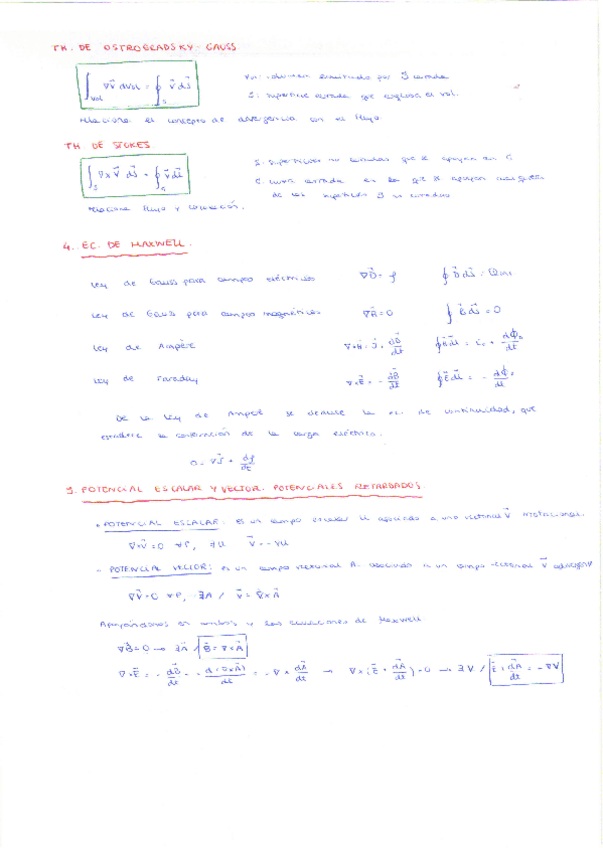 TH. DE OSTROGRADSKY-GAUSS.
∫vol ∇v⃗ dvol = ∮s v⃗ ds⃗
Vol: volumen encerrado por S cerrada
S: superficie cerrada que encierra el vol.
relaciona el concepto de divergencia con el flujo.
TH DE STOKES
∫s ∇×v⃗ ds⃗ = ∮s v⃗ dl⃗
S: superficies no cerradas que se apoyan en C
C curva cerrada en la que se apoyan
de las superficies S no cerradas
relaciona flujo y circulación.
4. EC. DE MAXWELL.
Ley de Gauss para campos eléctricos ∇D⃗ = ρ ∮ D⃗ ds⃗ = Qint
Ley de Gauss para campos magnéticos ∇B⃗ = 0 ∮ B⃗ ds⃗ = 0
Ley de Ampère ∇×H⃗ = J⃗ + dD⃗/dt ∮ H⃗ dl⃗ = ic + dΦ/dt
Ley de Faraday ∇×E⃗ = - dB⃗/dt ∮ E⃗ dl⃗ = - dΦ/dt
De la Ley de Amperè se deduce la ec. de continuidad, que
establece la conservación de la carga eléctrica.
0 = ∇J⃗ + dρ/dt
5. POTENCIAL ESCALAR Y VECTOR. POTENCIALES RETARDADOS.
POTENCIAL ESCALAR: es un campo escalar U asociado a uno vectorial v⃗ irrotacional.
∇×v⃗ = 0 ∀P, ∃U v⃗ = -∇U
- POTENCIAL VECTOR: es un campo vectorial A asociado a un campo vectorial v⃗
∇v⃗ = 0 ∀P, ∃A / v⃗ = ∇×A⃗
Apoyándonos en ambos y las ecuaciones de Maxwell
∇B⃗ = 0 → ∃A⃗ / B⃗ = ∇×A⃗
∇×E⃗ = - dB⃗/dt = - d(∇×A⃗)/dt = -∇× dA⃗/dt → ∇×(E⃗ + dA⃗/dt) = 0 → ∃V / E⃗ + dA⃗/dt = -∇V